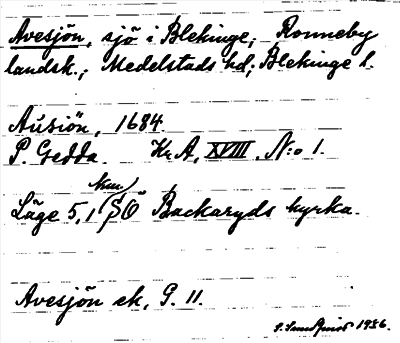 Avesjön, sjö i Blekinge; Ronneby
landsk.; Medelstads hd; Blekinge l.
Ausiön, 1684.
P. Gedda. Kr.A, XVIII. N:o 1.
km
Läge 5,1 SÖ Backaryds kyrka.
Avesjön ek, G. 11.
1986.